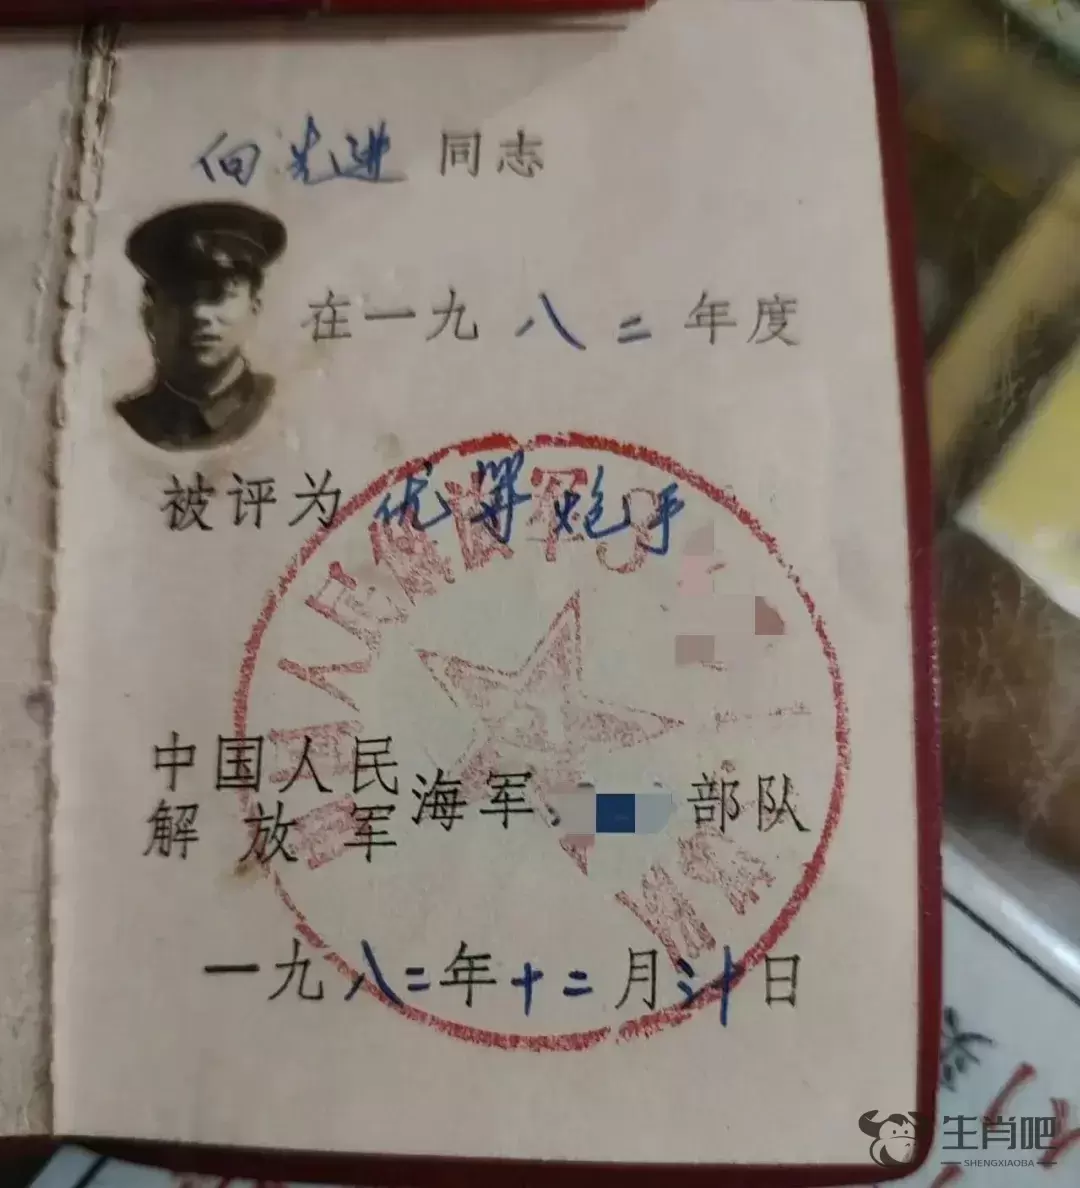 向先进同志
在一九八二年度
被评为优等炮手
中国人民解放军海军 部队
一九八二年十二月 日
生肖吧
SHENGXIAOBA